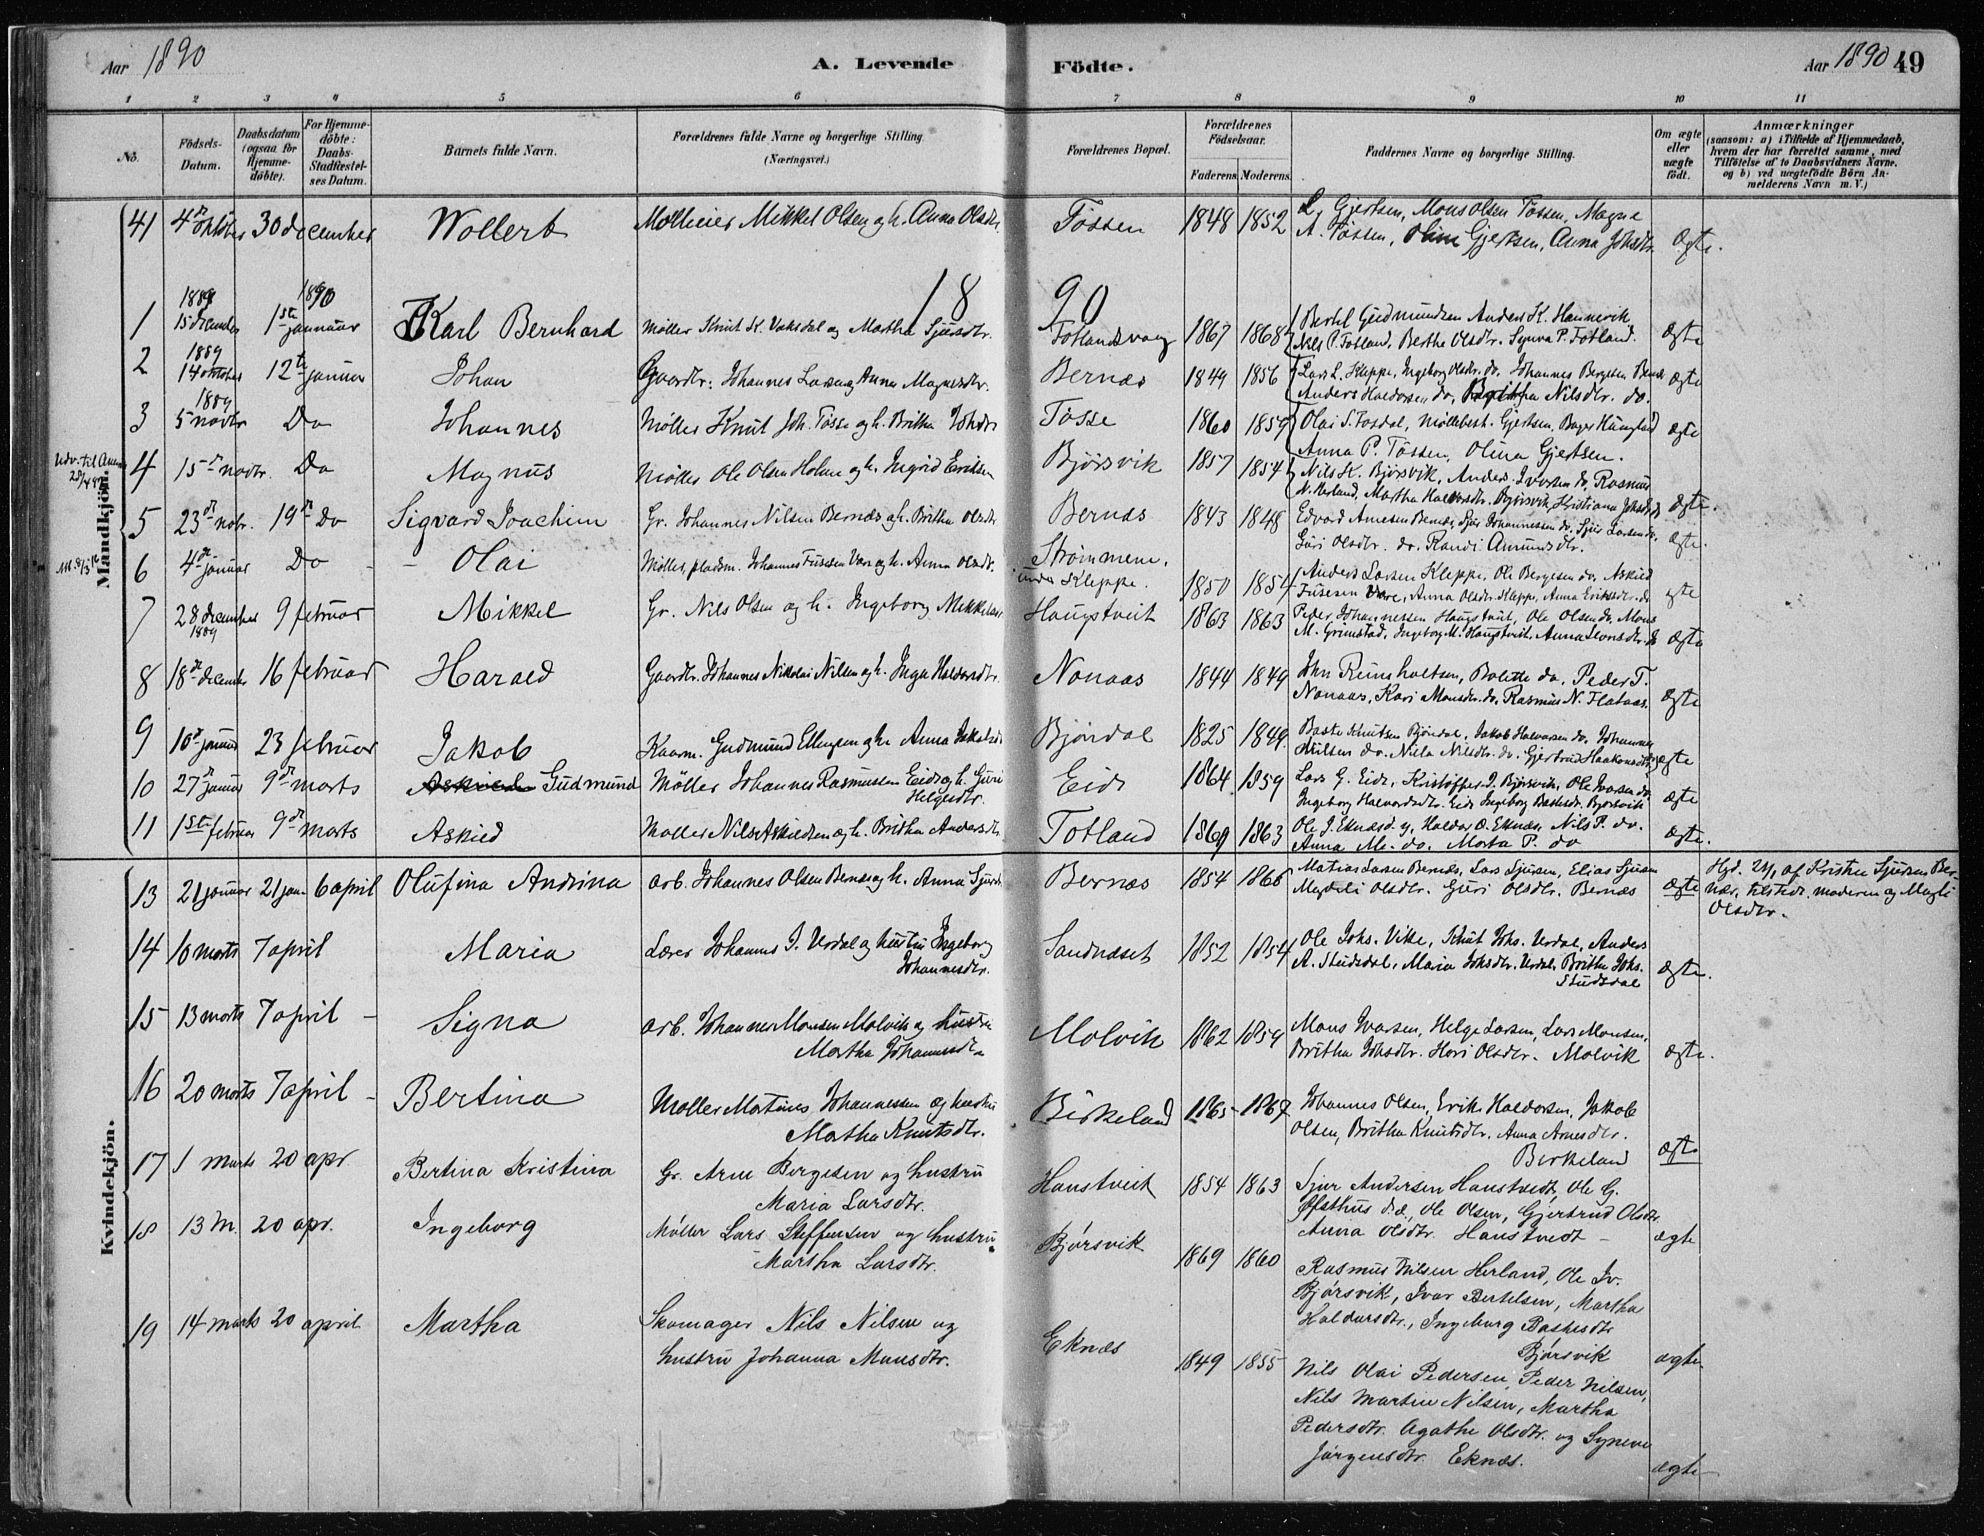 Aar 1890 A. Levende Födte. Aar 1890 49
1 2 3 4 5 6 7 8 9 10 11
No. Födsels-Datum. Daabsdatum (ogsaa for Hjemmedöbte). For Hjemmedöbte: Daabs-Stadfæstelses Datum. Barnets fulde Navn. Forældrenes fulde Navne og borgerlige Stilling. (Næringsvei.) Forældrenes Bopæl. Forældrenes Födselsaar. Faderens. Moderens. Faddernes Navne og borgerlige Stilling. Om ægte eller uægte födt. Anmærkninger (saasom: a) i Tilfælde af Hjemmedaab, hvem der har forrettet samme, med Tilföielse af to Daabsvidners Navne. og b) ved uægtefödte Börn Anmelderens Navn m. V.)
Mandkjön.
41 4de oktober 30 december Wollert Mikkel Olsen og h. Anna Olsdtr. Tøssen 1848 1852 L. Gjertsen, Mons Olsen Tøssen, Magne
A. Tøssen, Oline Gjertsen, Anna Johsdtr. Ægte.
1890
1 1889 15 december 1890 1ste januar Karl Bernhard Møller Knut K. Vaksdal og Martha Sjursdtr. Totlandsvaag 1867 1868 Bertel Gudmundsen Anders K. Hannevik
Nils P. Totland, Berthe Olsdtr. Synva P. Totland. Ægte
2 1889 14 oktober 12te januar Johan Gaardbr. Johannes Larsen og Anna Magnesdtr. Bernæs 1849 1856 Lars L. Kleppe, Ingeborg Olsdtr. do, Johannes Bergesen Bernæs
Anders Haldorsen do, Britha Nilsdtr. do. Ægte
3 1889 5 novbr. Do Johannes Møller Knut Joh. Tøsse og h. Britha Johsdtr Tøsse 1860 1859 Olai S. Fosdal, Møllebest. Gjertsen,
Anna P. Tøssen, Olina Gjertsen. Ægte
4 15de novbr. Do Magnus Møller Ole Olsen Holme og h. Ingrid Eriksen Bjørsvik 1857 1854 Nils K. Bjørsvik, Anders Ivarsen do, Rasmus
N. Herland, Martha Halvorsdtr. Bjørsvik, Kristiana Johsdtr do Ægte.
5 23de nobr. 19de Do Sigvard Joachim Gr. Johannes Nilsen Bernæs og h. Britha Olsdtr Bernæs 1843 1848 Edvard Arnesen Bernæs, Sjur Johannessen do, Sjur Larsen do,
Guri Olsdtr. do. Randi Amundsdtr. Ægte.
6 4de januar Do Olai Møller, pladsm. Johannes Fusesen Vare og h. Anna Olsdtr. Strømmene, under Kleppe. 1850 1854 Anders Larsen Kleppe, Ole Bergesen do, Askild
Fusesen Vare, Anna Olsdtr. Kleppe, Anna Eriksdtr. do Ægte
7 28 december 1889 9 februar Mikkel Gr. Nils Olsen og h. Ingeborg Mikkelsdtr Haugstveit 1863 1863 Peder Johannessen Haugstveit, Ole Olsen do, Mons
M. Grimstad, Ingeborg M. Haugstveit, Anna Ægte
8 18de december 16 februar Harald Gaardbr. Johannes Nikolai Nilsen og h. Inga Haldorsdtr. Nonaas 1844 1849 John Reinsholtsen, Bolette do, Peder T.
Nonaas, Kari Monsdtr. do, Rasmus N. Flataas. Ægte
9 10de januar 23 februar Jakob Kaarm. Gudmund Ellingsen og h. Anna Jakobsdtr Bjørndal 1825 1849 Baste Knutsen Bjørndal, Jakob Halvorsen do, Johannes
Nilsen do. Nicla Nilsdtr. do. Gjertrud Haakonsdtr. Ægte
10 27de januar 9de marts Gudmund Møller Johannes Rasmussen Eide og h. Guri
Helgesdtr. Eide 1864 1859 Lars G. Eide, Kristoffer J. Bjørsvik, Ole Ivarsen do,
Ingeborg Halvordsdtr. Eide Ingeborg Bastesdr. Bjørsvik Ægte
11 1ste februar 9de marts Askild Møller Nils Askildsen og h. Britha Andersdtr Totland 1869 1863 Ole J. Eknæs d. y, Haldor O. Eknæs, Nils P. do.
Anna M. do. Marta P. do Ægte.
Kvindekjön.
13 21 januar 21 jan. 6 april Olufina Andrina Arb. Johannes Olsen Bernæs og h. Anna Sjursdtr Bernæs 1854 1865 Matias Larsen Bernæs, Lars Sjursen, Elias Sjursen
Magdeli Olsdtr. Guri Olsdtr. Bernæs Ægte Hjd. 21/1 af Kristen Sjursen Ber-
næs, tilstede moderen og Magli
Olsdtr.
14 10 marts 7 april Maria Lærer Johannes J. Urdal og hustru Ingeborg
Johannesdtr. Sandnæset 1852 1854 Ole Johs. Vike, Knut Johs. Urdal, Anders
A. Studsdal, Maria Johsdtr. Urdal, Britha Johs.
Studsdal Ægte.
15 13 marts 7 april Signa Arb. Johannes Monsen Molvik og hustru
Martha Johannesdtr Molvik 1862 1859 Mons Ivarsen, Helge Larsen, Lars Monsen,
Britha Johsdtr. Kari Olsdtr. Molvik Ægte.
16 20 marts 7 april Bertina Møller Martines Johannessen og hustru
Martha Knutsdtr. Birkeland 1865 1867 Johannes Olsen, Erik Haldorsen, Jakob
Olsen, Britha Knutsdtr. Anna Arnesdtr.
Birkeland Ægte
17 1 marts 20 apr. Bertina Kristina Gr. Arne Bergesen og hustru
Maria Larsdtr. Hanstveit 1854 1863 Sjur Andersen Hanstvedt, Ole G.
Øfsthus d.æ, Ole Olsen, Gjertrud Olsdtr.
Anna Olsdtr. Hanstvedt ægte
18 13 M. 20 apr. Ingeborg Møller Lars Steffensen og hustru
Martha Larsdtr. Bjørsvik 1869 1860 Rasmus Nilsen Herland, Ole Iv.
Bjørsvik, Ivar Bertelsen, Martha
Haldorsdtr., Ingeborg Bastesdtr
Bjørsvik ægte
19 14 marts 20 april Martha Skomager Nils Nilsen og
hustru Johanna Monsdtr. Eknæs 1849 1855 Nils Olai Pedersen, Peder Nilsen,
Nils Martin Nilsen, Martha
Pedersdtr. Agathe Olsdtr. og Syneve
Jørgensdtr. Eknæs. ægte